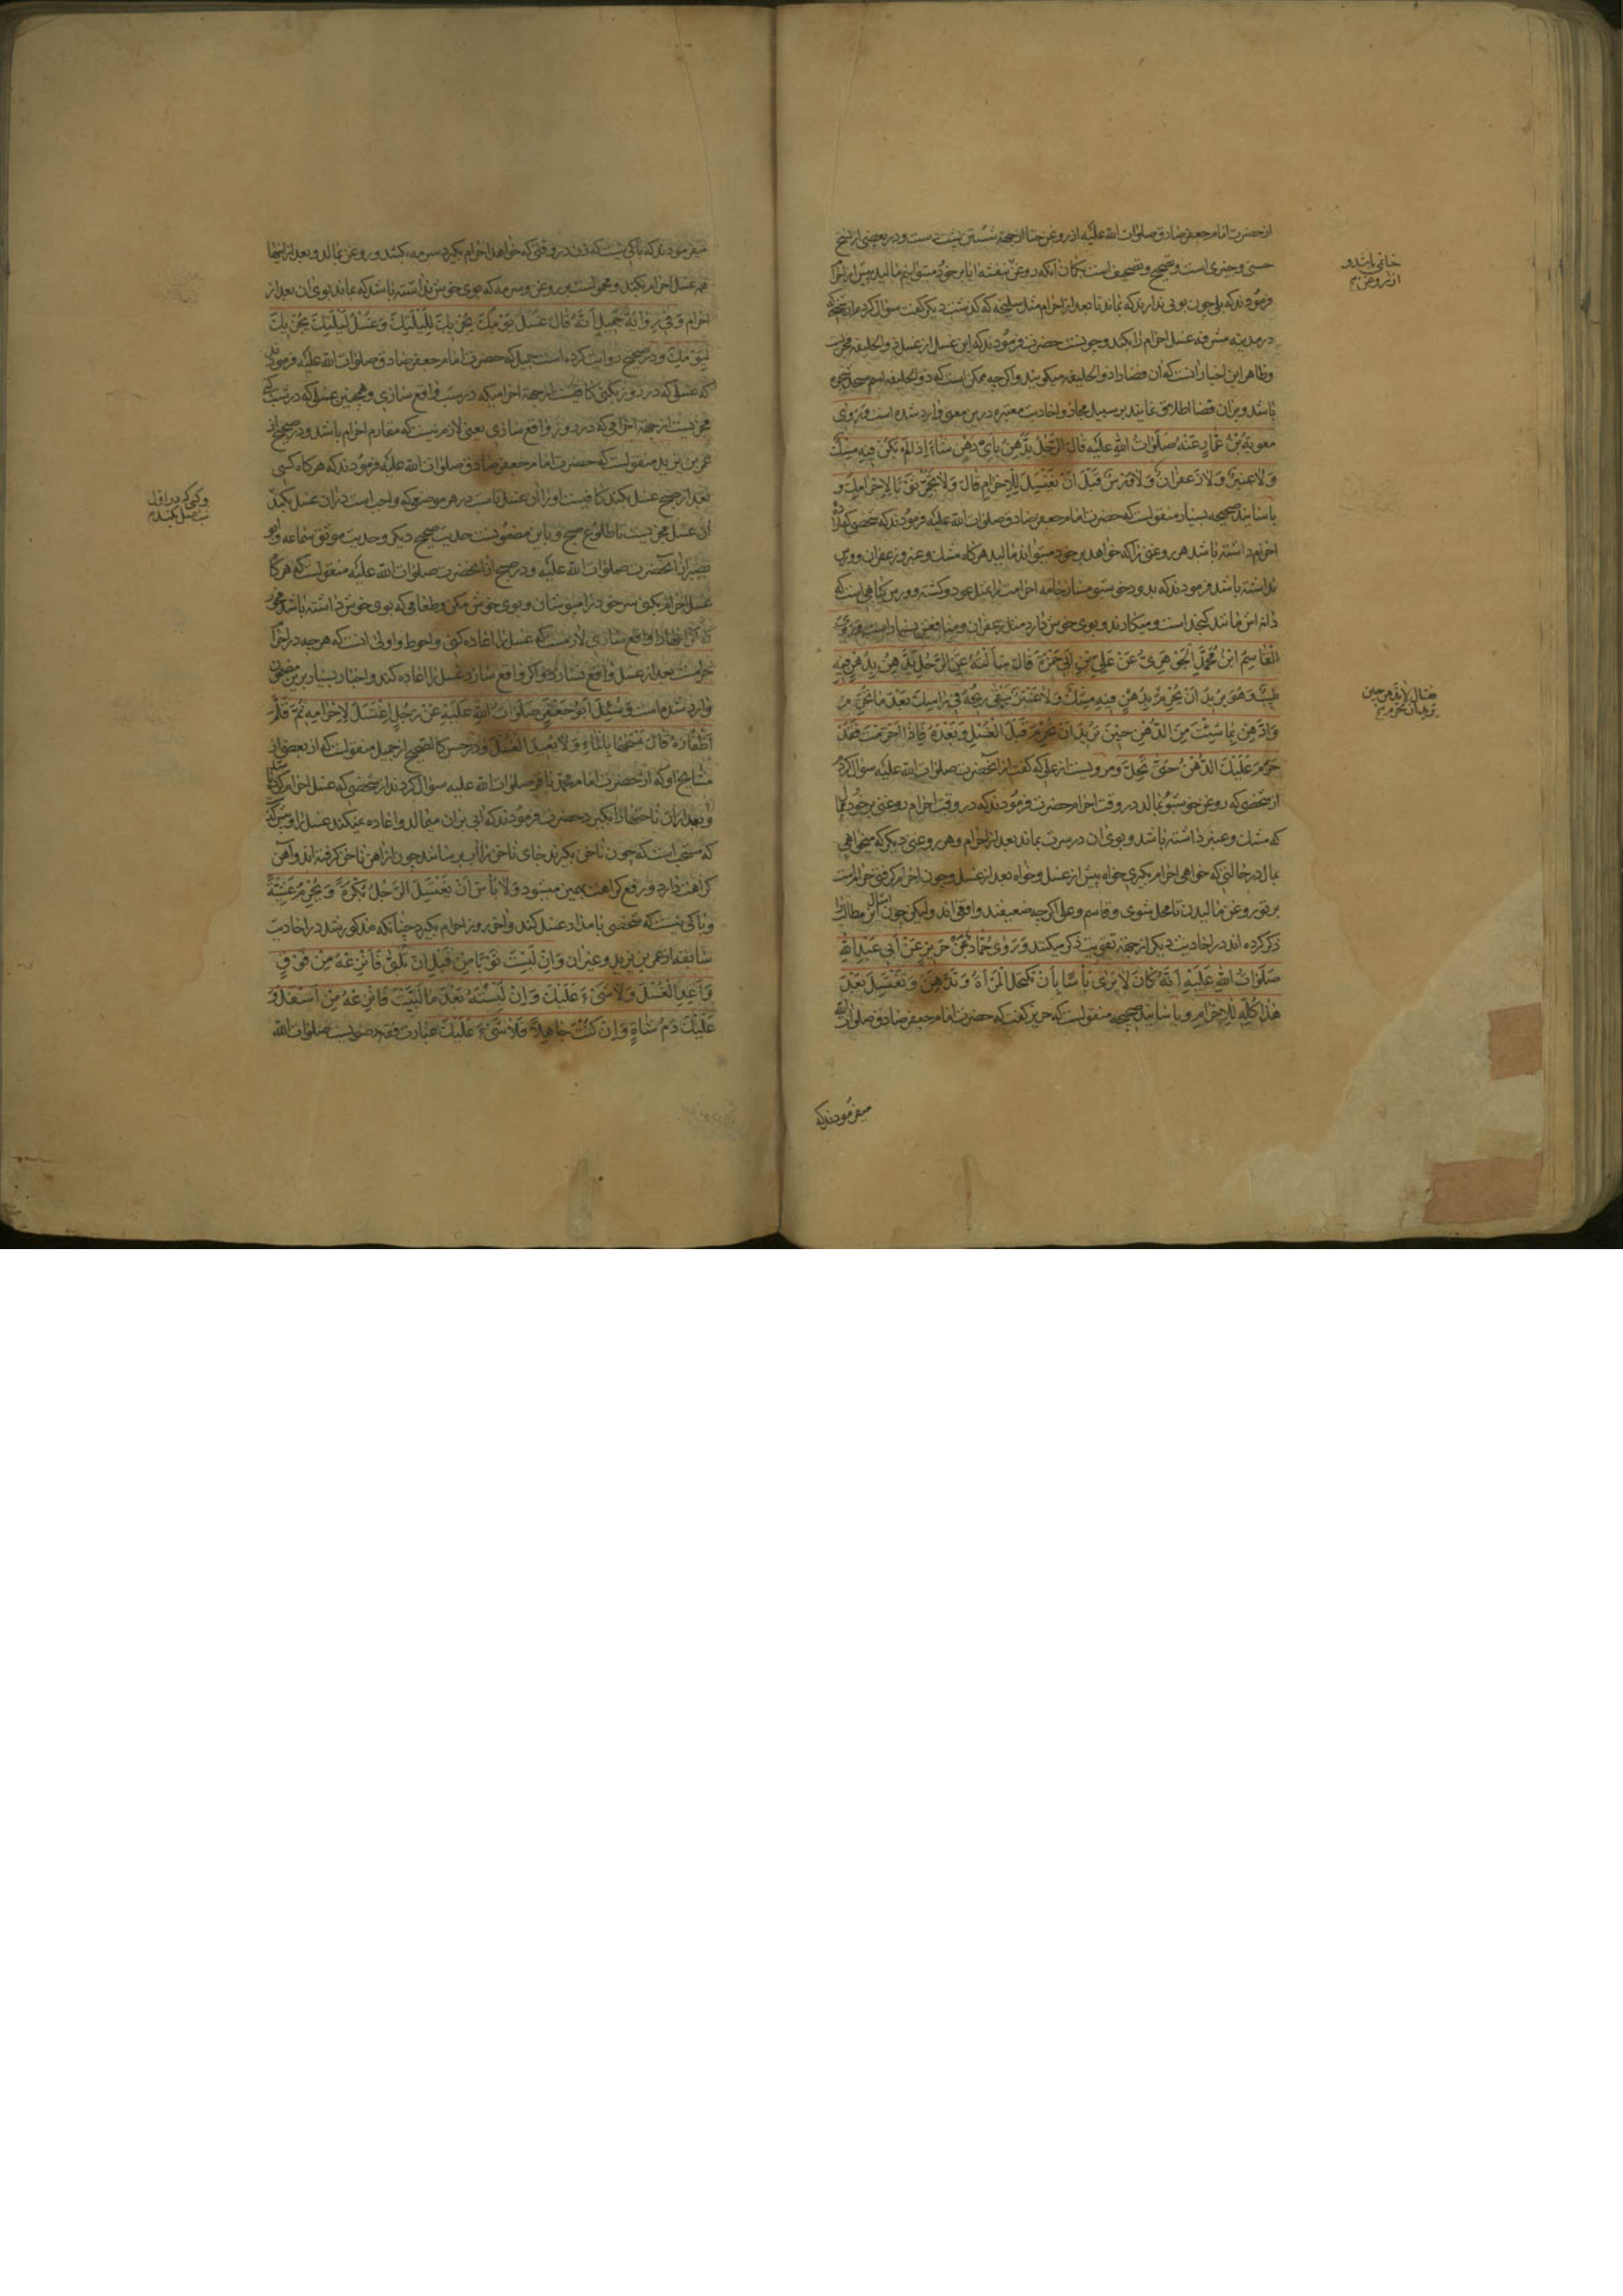 از حضرت امام جعفر صادق صلوات الله علیه از روغن حنا از جهة شستن نیست و در بعضی از نسخ
فرمودند که بلی چون بویی ندارند که بماند تا بعد از احرام مثل سلیخه که گذشت دیگر گفت سؤال کردم از
در مدینه مشرفه غسل احرام را بکند و چونست حضرت فرمودند که این غسل از غسل ذو الحلیفه مجزیست
و ظاهر این اخبار آنست که آن فضا را ذو الحلیفه میگویند و اگر چه ممکن است که ذو الحلیفه اسم مسجد
باشد و بر آن فضا اطلاق نمایند بر سبیل مجاز و احادیث معتبره درین معنی وارد شده است وَرَوی
معویةُ بْنُ عَمّارٍ عَنْهُ صَلَواتُ اللهِ عَلَیْهِ قالَ الرَّجُلُ یَدَّهِنُ بِاَیِّ دُهْنٍ شاءَ اِذا لَمْ یَکُنْ فیهِ مِسْکٌ
وَلا عَنْبَرٌ وَلا زَعْفَرانٌ وَلا وَرْسٌ قَبْلَ اَنْ یَغْتَسِلَ لِلْاِحْرامِ قالَ وَلا تُجَمِّرْ ثَوْبًا لِاِحْرامِكَ و
باسانید صحیحه بسیار منقولست که حضرت امام جعفر صادق صلوات الله علیه فرمودند که شخصی که اراده
احرام داشته باشد هر روغنی را که خواهد بر خود میتواند مالید هر گاه مشك و عنبر و زعفران و ورس
نداشته باشد فرمودند که بدود خوشبو مساز جامه احرامت را مثل عود و کشته و ورس گیاهی است که
دانه اش مانند کنجد است و میکارند و بوی خوش دارد مثل زعفران و منافعش بسیار است وَرَوَی
الْقاسِمُ ابْنُ مُحَمَّدٍ الْجَوْهَریُّ عَنْ عَلِیِّ بْنِ اَبی حَمْزَةَ قالَ سَأَلْتُهُ عَنِ الرَّجُلِ یَدَّهِنُ بِدُهْنٍ فیهِ
طیبٌ وَهُوَ یُریدُ اَنْ یُحْرِمَ بِدُهْنٍ فیهِ مِسْكٌ وَلا عَنْبَرٌ یَبْقی ریحُهُ فی رَأْسِكَ بَعْدَ ما تُحْرِمُ
وَادَّهِنْ بِما شِئْتَ مِنَ الدُّهْنِ حینَ تُریدُ اَنْ تُحْرِمَ قَبْلَ الْغُسْلِ وَبَعْدَهُ فَاِذا اَحْرَمْتَ فَقَدْ
حَرُمَ عَلَیْكَ الدُّهْنُ حَتّی تَحِلَّ و مرویست از علی که گفت از آنحضرت صلوات الله علیه سؤال کردم
از شخصی که روغن خوشبو بمالد در وقت احرام حضرت فرمودند که در وقت احرام روغنی بر خود ممال
که مشك و عنبر داشته باشد و بوی آن در سرت بماند بعد از احرام و هر روغنی دیگر که میخواهی
بمال در حالتی که خواهی احرام بگیری خواه پیش از غسل و خواه بعد از غسل و چون احرام گرفتی حرامست
بر تو روغن مالیدن تا محل شوی و قاسم و علی اگر چه ضعیفند و واقفی اند و لیکن چون امثال این مطالب را
ذکر کرده اند در احادیث دیگر از جهة تقویت ذکر میکنند وَرَوی حَمّادٌ عَنْ حَریزٍ عَنْ اَبی عَبْدِ اللهِ
صَلَواتُ اللهِ عَلَیْهِ اَنَّهُ کانَ لا یَری بَأْسًا بِاَنْ تَکْتَحِلَ الْمَرْأَةُ وَتَدَّهِنَ وَتَغْتَسِلَ بَعْدَ
هذا کُلِّهِ لِلْاِحْرامِ و باسانید صحیحه منقولست که حریز گفت که حضرت امام جعفر صادق صلوات الله
میفرمودند که
میفرمودند که باکی نیست که زن در وقتی که خواهد احرام بگیرد سرمه بکشد و روغن بمالد و بعد از اینها
همه غسل احرام بکند و محمولست بر روغن و سرمه که بوی خوش نداشته باشد که بماند بوی آن بعد از
احرام وَفی رِوایَةِ جَمیلٍ اَنَّهُ قالَ غُسْلُ یَوْمِكَ یُجْزیكَ لِلَیْلَتِكَ وَغُسْلُ لَیْلَتِكَ یُجْزیكَ
لِیَوْمِكَ و در صحیح روایت کرده است جمیل که حضرت امام جعفر صادق صلوات الله علیه فرمودند
که غسلی که در روز بکنی کافیست از جهة احرامیکه در شب واقع سازی و همچنین غسلی که در شب کنی
مجزیست از جهة احرامی که در روز واقع سازی یعنی لازم نیست که مقارن احرام باشد و در صحیح از
عمر بن یزید منقولست که حضرت امام جعفر صادق صلوات الله علیه فرمودند که هر گاه کسی
بعد از صبح غسل بکند کافیست او را آن غسل تا شب در هر موضعی که واجب است در آن غسل بکند
آن غسل مجزیست تا طلوع صبح و باین مضمونست حدیث صحیح دیگر و حدیث موثق سماعه و ابو
بصیر از آنحضرت صلوات الله علیه و در صحیح از آنحضرت صلوات الله علیه منقولست که هر گاه
غسل احرام بکنی سر خود را مپوشان و بوی خوش مکن و طعامی که بوی خوش داشته باشد مخور
که اگر اینها را واقع سازی لازمست که غسل را اعاده کنی و احوط و اولی آنست که هر چه در احرام
حرامست بعد از غسل واقع نسازد و اگر واقع سازد غسل را اعاده کند و اخبار بسیار برین مضمون
وارد شده است وَسُئِلَ اَبُو جَعْفَرٍ صَلَواتُ اللهِ عَلَیْهِ عَنْ رَجُلٍ اغْتَسَلَ لِاِحْرامِهِ ثُمَّ قَلَّمَ
اَظْفارَهُ قالَ یَمْسَحُها بِالْماءِ وَلا یُعیدُ الْغُسْلَ و در حسن کالصحیح از جمیل منقولست که از بعضی از
مشایخ او که از حضرت امام محمد باقر صلوات الله علیه سؤال کردند از شخصی که غسل احرام کرده باشد
و بعد از آن ناخنها را بگیرد حضرت فرمودند که آبی بر آن میمالد و اعاده نمیکند غسل را
که مستحب است که چون ناخن بگیرند جای ناخن را آب برسانند چون از آهن ناخن گرفته اند و آهن
کراهت دارد و رفع کراهت بهمین میشود وَلا بَأْسَ اَنْ یَغْتَسِلَ الرَّجُلُ بُکْرَةً وَیُحْرِمَ عَشِیَّةً
و باکی نیست که شخصی بامداد غسل کند و آخر روز احرام بگیرد چنانکه مذکور شد در احادیث
سابقه از عمر بن یزید و غیر آن وَاِنْ لَبِسْتَ ثَوْبًا مِنْ قَبْلِ اَنْ تُلَبِّیَ فَانْزِعْهُ مِنْ فَوْقٍ
وَاَعِدِ الْغُسْلَ وَلا شَیْءَ عَلَیْكَ وَاِنْ لَبِسْتَهُ بَعْدَ ما لَبَّیْتَ فَانْزِعْهُ مِنْ اَسْفَلَ وَ
عَلَیْكَ دَمُ شاةٍ وَاِنْ کُنْتَ جاهِلًا فَلا شَیْءَ عَلَیْكَ عبارت فقه رضویست صلوات الله